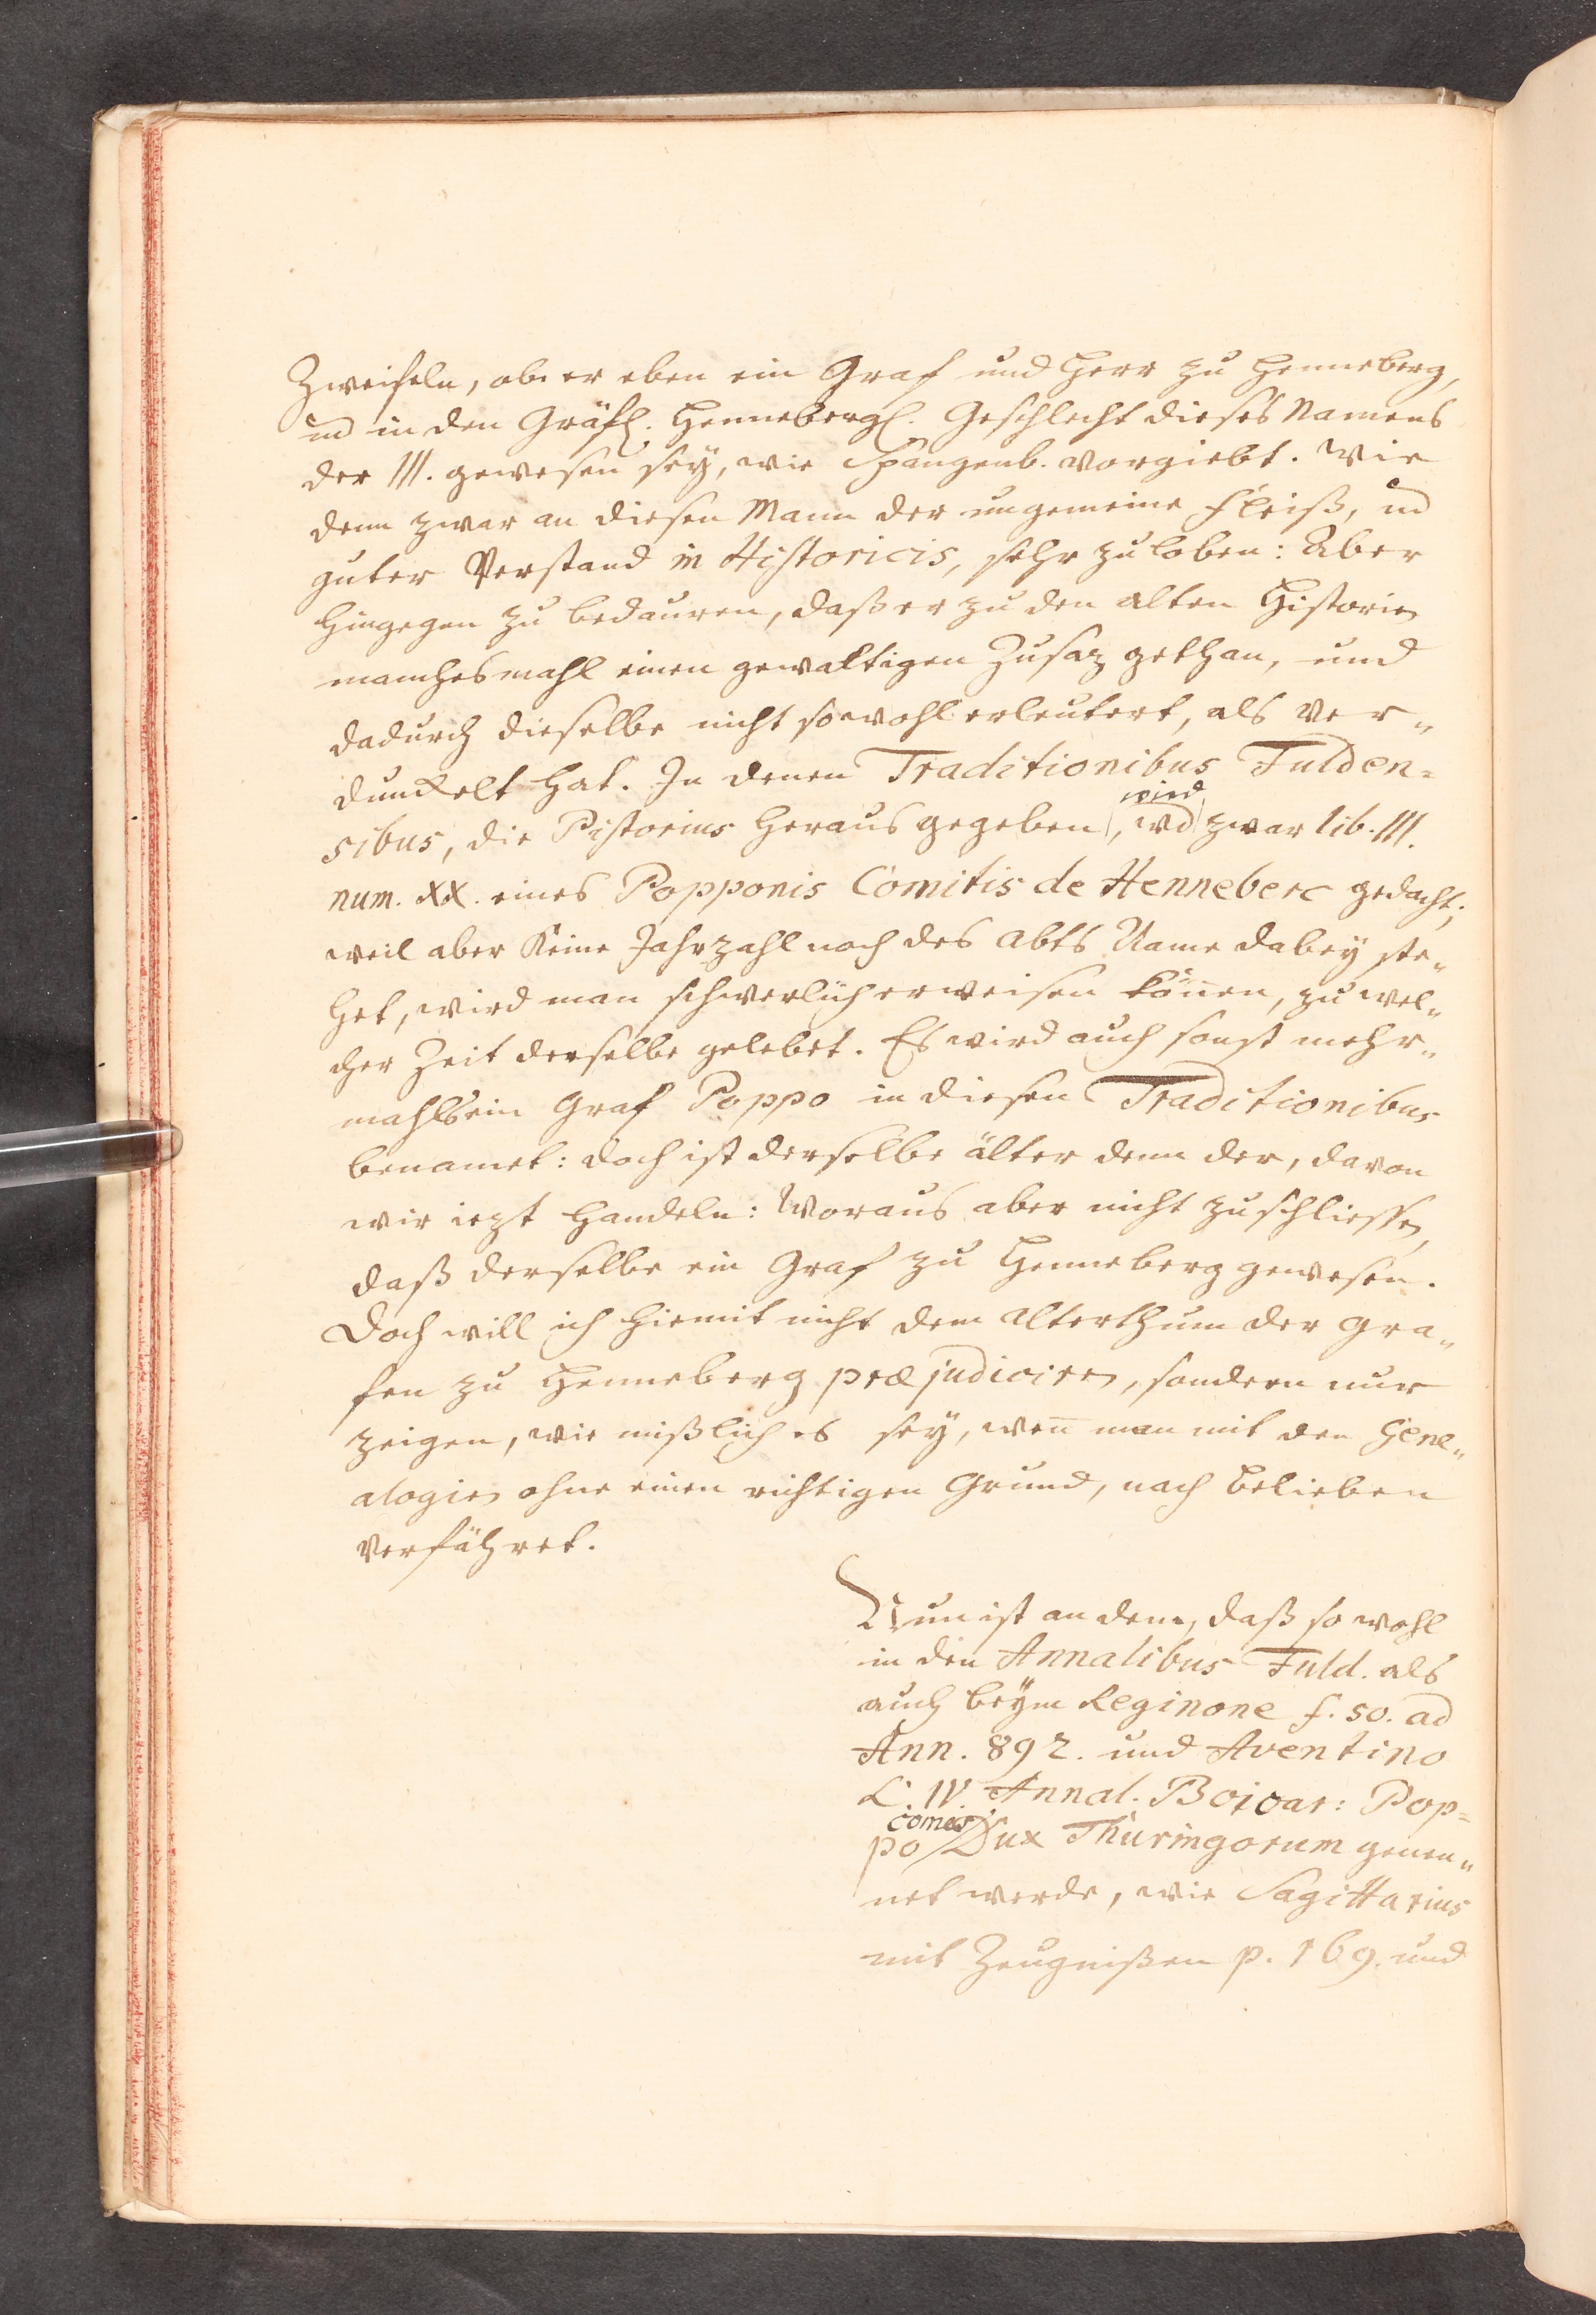 Zweifeln, ob er eben ein Graf und Herr zu Henneberg,
und in den Gräfl. Hennebergl. Geschlecht dieses Namens
der III. gewesen seÿ, wie Spangenb. vorgiebt. Wie
denn zwar an diesen Mann der ungemeine Fleiß, und
guter Verstand in Historicis, sehr zu loben: Aber
hingegen zu bedauren, daß er zu den alten Historien
manchesmahl einen gewaltigen Zusaz gethan, und
dadurch dieselbe nicht sowohl erleutert, als ver„
dunckelt hat. In denen Traditionibus Fulden=
wird
sibus, die Pistorius herausgegeben, und zwar lib. III.
num. XX. eines Popponis Comitis de Henneberc gedacht;
weil aber keine Jahrzahl noch des Abts Name dabeÿ ste„
het, wird man schwerlich erweisen können, zu wel„
cher Zeit derselbe gelebet. Es wird auch sonst mehr„
mahls ein Graf Poppo in diesen Traditionibus
benamet: doch ist derselbe älter denn der, davon
wir iezt handeln: Woraus aber nicht zu schliessen,
daß derselbe ein Graf zu Henneberg gewesen.
Doch will ich hiemit nicht dem Alterthum der Gra„
fen zu Henneberg præjudiciren, sondern nur
zeigen, wie mißlich es seÿ, wen̄ man mit den Gene„
alogien ohne einen richtigen Grund, nach Belieben
verfähret.
Nun ist an dem, daß so wohl
in den Annalibus Fuld. als
auch beÿm Reginone f. 50. ad
Ann. 892. und Aventino
L. IV. Annal. Boioar: Pop=
comes
po Dux Thuringorum genen„
net werde, wie Sagittarius
mit Zeugnißen p. 169. und